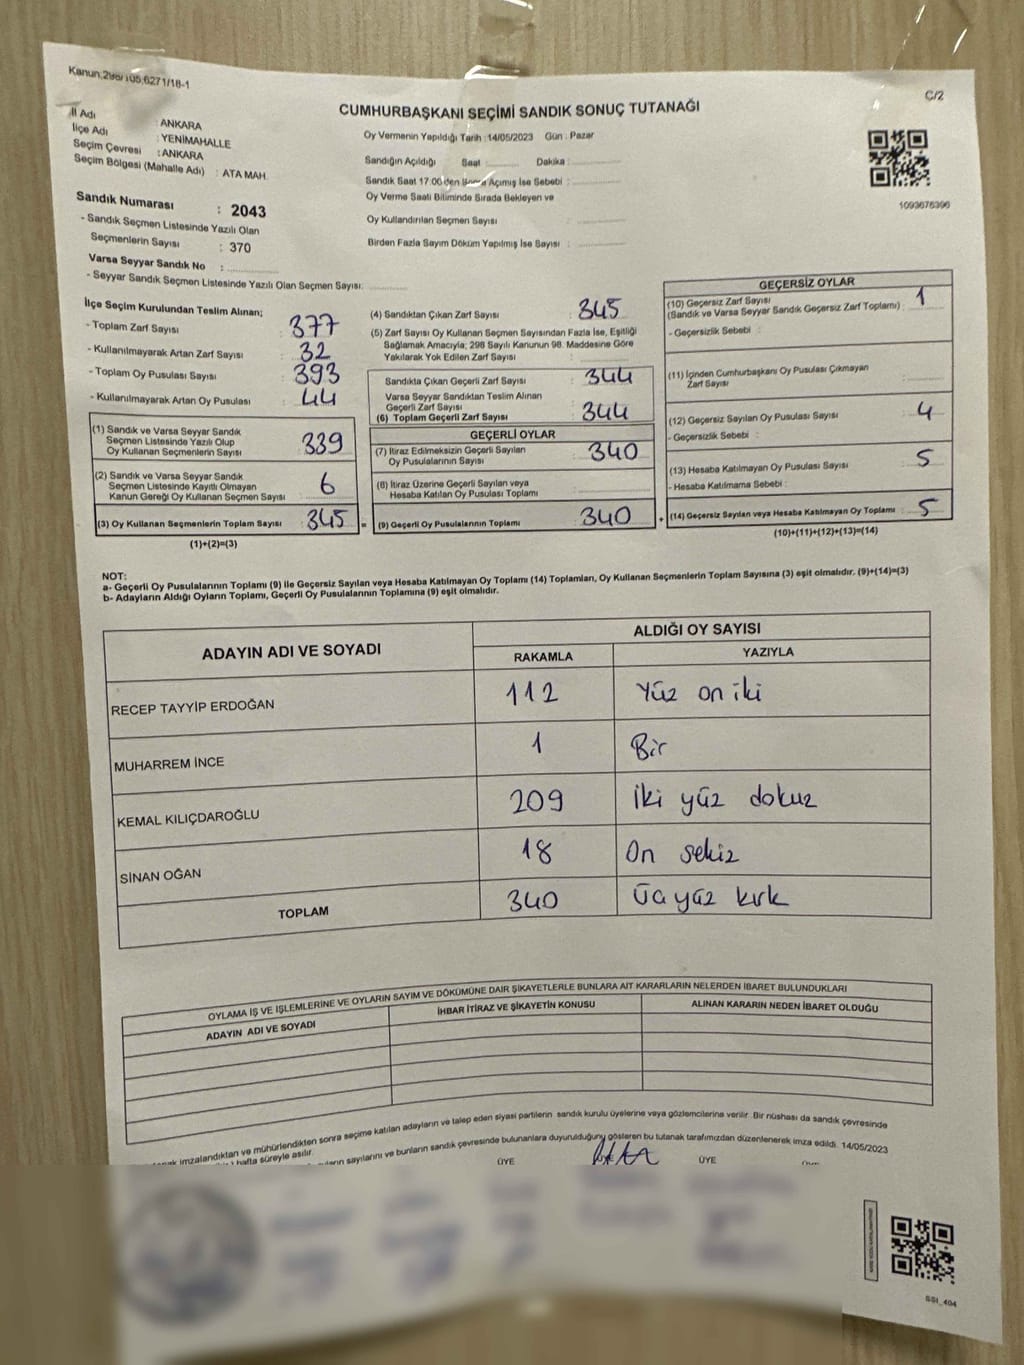 Kanun:298/105,6271/18-1
C/2
CUMHURBAŞKANI SEÇİMİ SANDIK SONUÇ TUTANAĞI
İl Adı : ANKARA
İlçe Adı : YENİMAHALLE
Seçim Çevresi : ANKARA
Seçim Bölgesi (Mahalle Adı) : ATA MAH.
Oy Vermenin Yapıldığı Tarih :14/05/2023 Gün : Pazar
Sandığın Açıldığı Saat : Dakika :
Sandık Saat 17:00'den Sonra Açımış İse Sebebi :
Oy Verme Saati Bitiminde Sırada Bekleyen ve
Oy Kullandırılan Seçmen Sayısı :
Birden Fazla Sayım Döküm Yapılmış İse Sayısı :
1093676396
Sandık Numarası : 2043
- Sandık Seçmen Listesinde Yazılı Olan
Seçmenlerin Sayısı : 370
Varsa Seyyar Sandık No :
- Seyyar Sandık Seçmen Listesinde Yazılı Olan Seçmen Sayısı:
İlçe Seçim Kurulundan Teslim Alınan;
- Toplam Zarf Sayısı : 377
- Kullanılmayarak Artan Zarf Sayısı : 32
- Toplam Oy Pusulası Sayısı : 393
- Kullanılmayarak Artan Oy Pusulası : 44
(1) Sandık ve Varsa Seyyar Sandık
Seçmen Listesinde Yazılı Olup
Oy Kullanan Seçmenlerin Sayısı : 339
(2) Sandık ve Varsa Seyyar Sandık
Seçmen Listesinde Kayıtlı Olmayan
Kanun Gereği Oy Kullanan Seçmen Sayısı : 6
(3) Oy Kullanan Seçmenlerin Toplam Sayısı : 345 =
(1)+(2)=(3)
(4) Sandıktan Çıkan Zarf Sayısı : 345
(5) Zarf Sayısı Oy Kullanan Seçmen Sayısından Fazla İse, Eşitliği
Sağlamak Amacıyla; 298 Sayılı Kanunun 98. Maddesine Göre
Yakılarak Yok Edilen Zarf Sayısı :
Sandıkta Çıkan Geçerli Zarf Sayısı : 344
Varsa Seyyar Sandıktan Teslim Alınan
Geçerli Zarf Sayısı :
(6) Toplam Geçerli Zarf Sayısı : 344
GEÇERLİ OYLAR
(7) İtiraz Edilmeksizin Geçerli Sayılan
Oy Pusulalarının Sayısı : 340
(8) İtiraz Üzerine Geçerli Sayılan veya
Hesaba Katılan Oy Pusulası Toplamı :
(9) Geçerli Oy Pusulalarının Toplamı : 340 +
GEÇERSİZ OYLAR
(10) Geçersiz Zarf Sayısı
(Sandık ve Varsa Seyyar Sandık Geçersiz Zarf Toplamı) : 1
- Geçersizlik Sebebi :
(11) İçinden Cumhurbaşkanı Oy Pusulası Çıkmayan
Zarf Sayısı :
(12) Geçersiz Sayılan Oy Pusulası Sayısı : 4
- Geçersizlik Sebebi :
(13) Hesaba Katılmayan Oy Pusulası Sayısı : 5
- Hesaba Katılmama Sebebi :
(14) Geçersiz Sayılan veya Hesaba Katılmayan Oy Toplamı : 5
(10)+(11)+(12)+(13)=(14)
NOT:
a- Geçerli Oy Pusulalarının Toplamı (9) ile Geçersiz Sayılan veya Hesaba Katılmayan Oy Toplamı (14) Toplamları, Oy Kullanan Seçmenlerin Toplam Sayısına (3) eşit olmalıdır. (9)+(14)=(3)
b- Adayların Aldığı Oyların Toplamı, Geçerli Oy Pusulalarının Toplamına (9) eşit olmalıdır.
ADAYIN ADI VE SOYADI
ALDIĞI OY SAYISI
RAKAMLA YAZIYLA
RECEP TAYYİP ERDOĞAN 112 Yüz on iki
MUHARREM İNCE 1 Bir
KEMAL KILIÇDAROĞLU 209 İki yüz dokuz
SİNAN OĞAN 18 On sekiz
TOPLAM 340 Üç yüz kırk
OYLAMA İŞ VE İŞLEMLERİNE VE OYLARIN SAYIM VE DÖKÜMÜNE DAİR ŞİKAYETLERLE BUNLARA AİT KARARLARIN NELERDEN İBARET BULUNDUKLARI
ADAYIN ADI VE SOYADI İHBAR İTİRAZ VE ŞİKAYETİN KONUSU ALINAN KARARIN NEDEN İBARET OLDUĞU
imzalandıktan ve mühürlendikten sonra seçime katılan adayların ve talep eden siyasi partilerin sandık kurulu üyelerine veya gözlemcilerine verilir. Bir nüshası da sandık çevresinde
hafta süreyle asılır.
sayılarını ve bunların sandık çevresinde bulunanlara duyurulduğunu gösteren bu tutanak tarafımızdan düzenlenerek imza edildi. 14/05/2023
ÜYE ÜYE
SSI_404